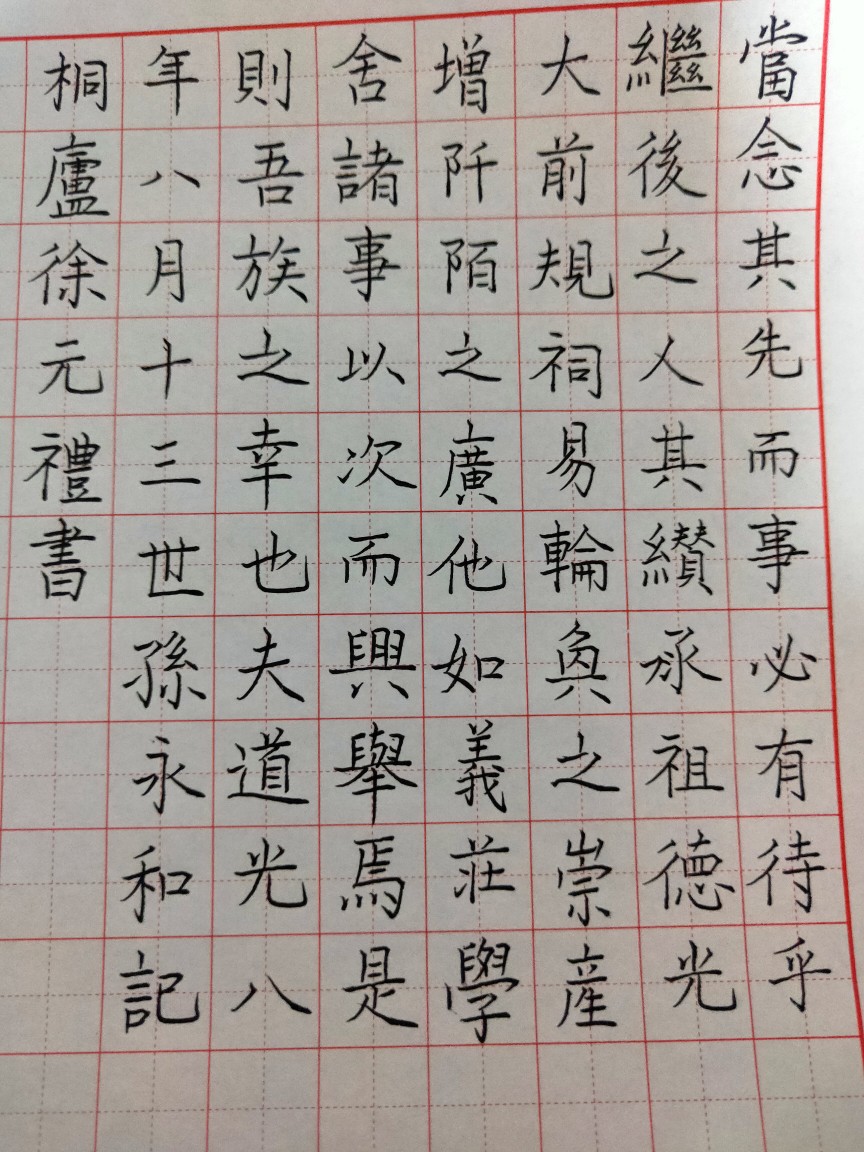 當念其先而事必有待乎
繼後之人其纘承祖德光
大前規祠易輪奐之崇產
增阡陌之廣他如義莊學
舍諸事以次而興舉焉是
則吾族之幸也夫道光八
年八月十三世孫永和記
桐廬徐元禮書